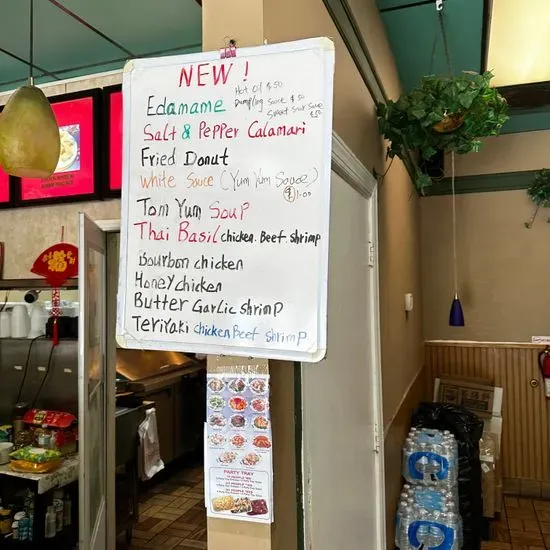 NEW!
Hot Oil $.50
Edamame Dumpling Sauce $.50
Sweet Sour Sauce
$.50
Salt & Pepper Calamari
Fried Donut
White Sauce (Yum Yum Sauce)
$1.00
Tom Yum Soup
Thai Basil chicken. Beef. shrimp
Bourbon chicken
Honey chicken
Butter Garlic shrimp
Teriyaki chicken Beef shrimp
PARTY TRAY